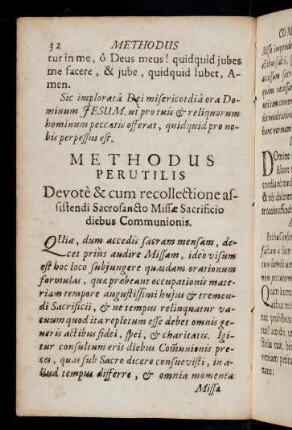 32 METHODUS
tur in me, ô Deus meus! quidquid jubes
me facere, & jube, quidquid lubet, A-
men.
Sic imploratâ Dei misericordiâ ora Do-
minum JESUM, ut pro tuis & reliquorum
hominum peccatis offerat, quidquid pro no-
bis perpessus est.
METHODUS
PERUTILIS
Devotè & cum recollectione as-
sistendi Sacrosancto Missæ Sacrificio
diebus Communionis.
QUia, dum accedis sacram mensam, de-
cet prius audire Missam, ideo visum
est hoc loco subjungere quasdam orationum
formulas, quæ præbeant occupationis mate-
riam tempore augustissimi hujus & tremen-
di Sacrificii, & ne tempus relinquatur va-
cuum quod ita repletum esse debet omnis ge-
neris actibus fidei, spei, & charitatis. Igi-
tur consultum erit diebus Com̃unionis pre-
ces, quas sub Sacro dicere consuevisti, in a-
liud tempus differre, & omnia momenta
Missæ